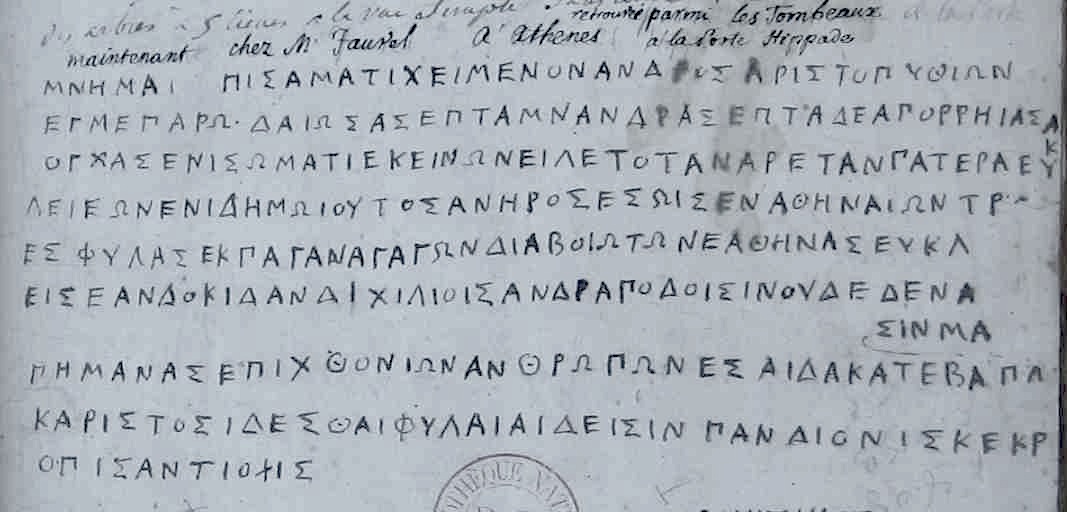 des arbres à 5 lieues
retrouvé parmi les Tombeaux
maintenant chez Mr Fauvel à Athenes à la Porte Hippades
ΜΝΗΜΑΙ ΠΙΣΑΜΑΤΙΧΕΙΜΕΝΟΝΑΝΔΡΟΣΑΡΙΣΤΟΠΥΘΙΩΝ
ΕΓΜΕΓΑΡΩ·ΔΑΙΩΣΑΣΕΠΤΑΜΝΑΝΔΡΑΣΕΠΤΑΔΕΑΓΟΡΡΗΙΑΣΑ
ΟΓΧΑΣΕΝΙΣΩΜΑΤΙΕΚΕΙΝΩΝΕΙΛΕΤΟΤΑΝΑΡΕΤΑΝΓΑΤΕΡΑΕΥΚ
ΛΕΙΕΩΝΕΝΙΔΗΜΩΙΟΥΤΟΣΑΝΗΡΟΣΕΣΩΙΣΕΝΑΘΗΝΑΙΩΝΤΡ
ΕΣΦΥΛΑΣΕΚΠΑΓΑΝΑΓΑΓΩΝΔΙΑΒΟΙΩΤΩΝΕΑΘΗΝΑΣΕΥΚΛ
ΕΙΣΕΑΝΔΟΚΙΔΑΝΔΙΧΙΛΙΟΙΣΑΝΔΡΑΓΟΔΟΙΣΙΝΟΥΔΕΔΕΝΑ
ΣΙΝΜΑ
ΠΗΜΑΝΑΣΕΠΙΧΘΟΝΙΩΝΑΝΘΡΩΠΩΝΕΣΑΙΔΑΚΑΤΕΒΑΠΑ
ΚΑΡΙΣΤΟΣΙΔΕΣΘΑΙΦΥΛΑΙΑΙΔΕΙΣΙΝΠΑΝΔΙΟΝΙΣΚΕΚΡ
ΟΠΙΣΑΝΤΙΟΧΙΣ
OTHÈQUE NAT